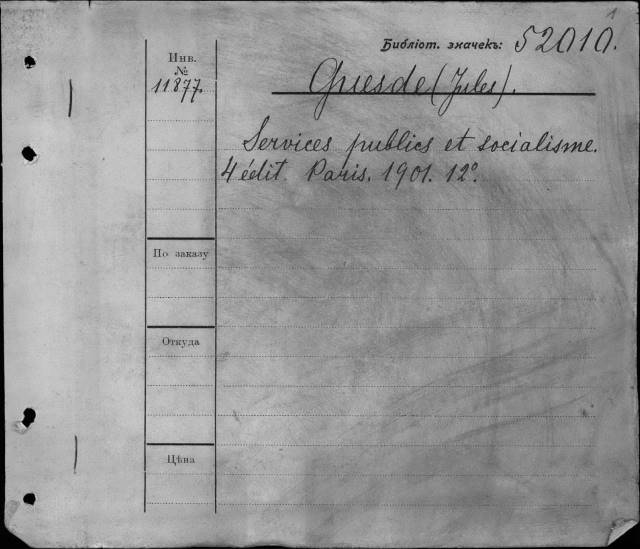 1
Библіот. значекъ: 52010.
Инв.
№
11877.
Guesde (Jules).
Services publics et socialisme.
4 édit. Paris. 1901. 12°.
По заказу
Откуда
Цѣна